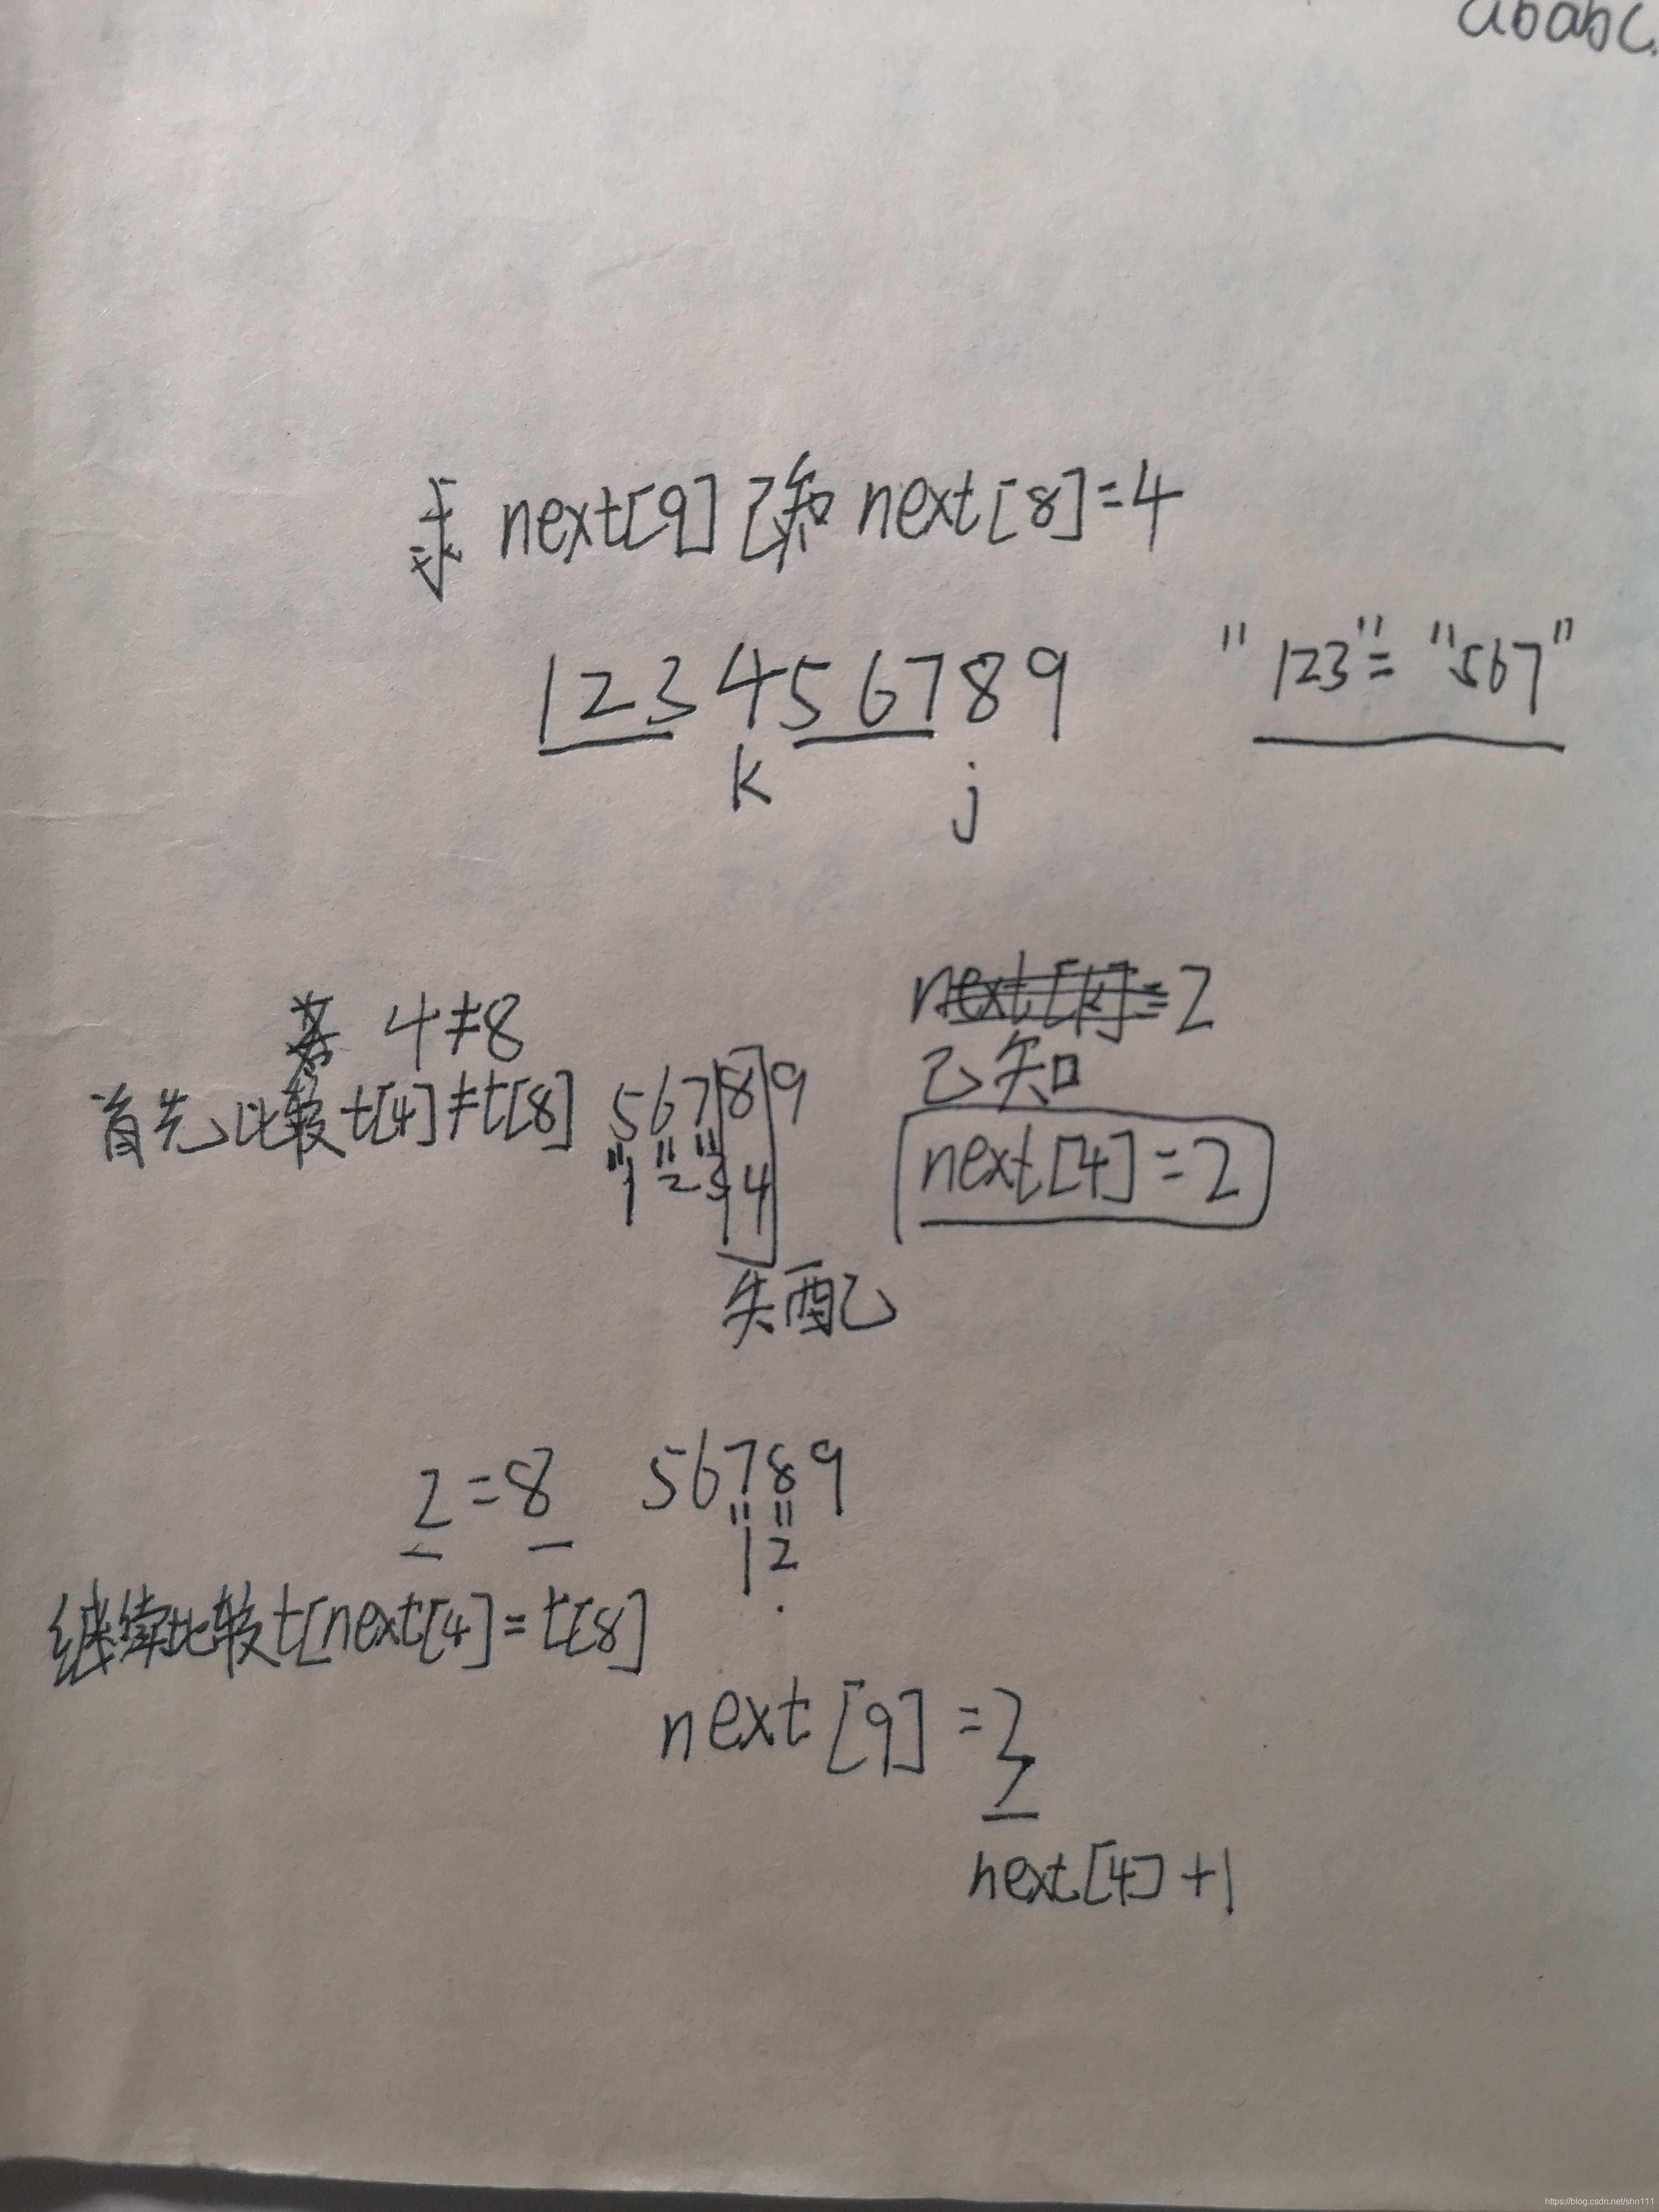 ababc
求 next[9] 已知 next[8]=4
123456789 "123"="567"
k j
next[k]=2
4≠8
已知
首先比较t[4]≠t[8] 56789
1234
next[4]=2
失配
2=8 56789
12
继续比较t[next[4]=t[8]
next[9]=3
next[4]+1
https://blog.csdn.net/shn111